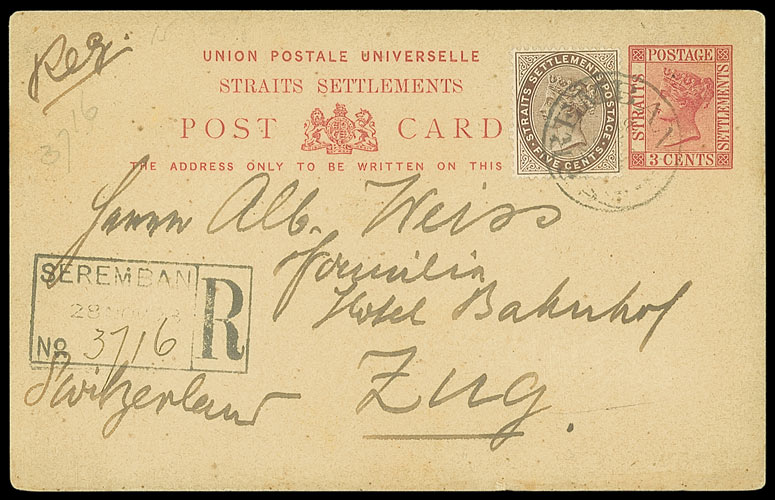 Reg.
3716
UNION POSTALE UNIVERSELLE
STRAITS SETTLEMENTS
POST CARD
THE ADDRESS ONLY TO BE WRITTEN ON THIS
STRAITS SETTLEMENTS POSTAGE
FIVE CENTS
POSTAGE
STRAITS
SETTLEMENTS
3 CENTS
Herrn Alb. Weiss
Familia
Hotel Bahnhof
SEREMBAN
28 NOV
R
No 3716
Switzerland
Zug.